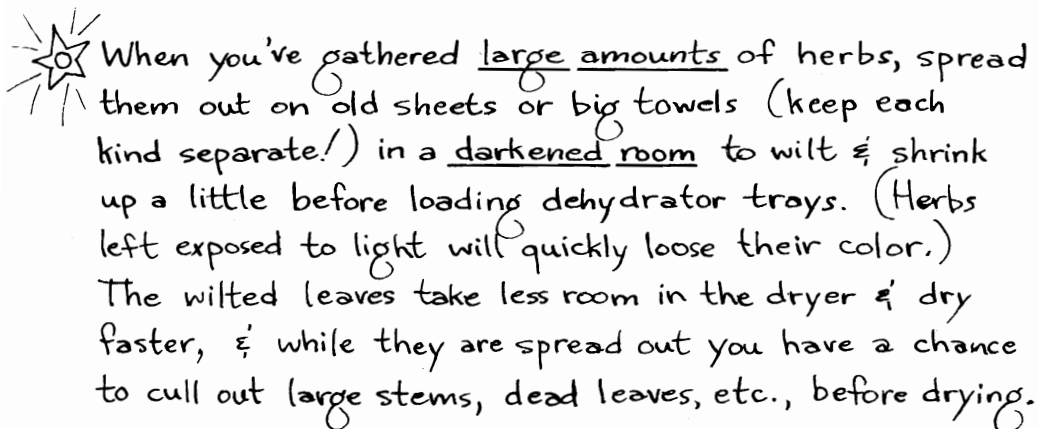 When you've gathered large amounts of herbs, spread
them out on old sheets or big towels (keep each
kind separate!) in a darkened room to wilt & shrink
up a little before loading dehydrator trays. (Herbs
left exposed to light will quickly loose their color.)
The wilted leaves take less room in the dryer & dry
faster, & while they are spread out you have a chance
to cull out large stems, dead leaves, etc., before drying.